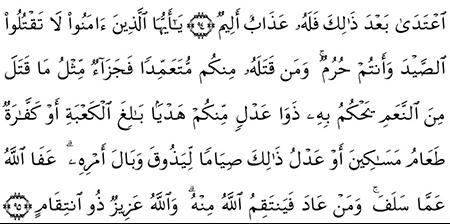 ٱعْتَدَىٰ بَعْدَ ذَٰلِكَ فَلَهُۥ عَذَابٌ أَلِيمٌ ﴿٩٤﴾ يَـٰٓأَيُّهَا ٱلَّذِينَ ءَامَنُوا۟ لَا تَقْتُلُوا۟
ٱلصَّيْدَ وَأَنتُمْ حُرُمٌ ۚ وَمَن قَتَلَهُۥ مِنكُم مُّتَعَمِّدًا فَجَزَآءٌ مِّثْلُ مَا قَتَلَ
مِنَ ٱلنَّعَمِ يَحْكُمُ بِهِۦ ذَوَا عَدْلٍ مِّنكُمْ هَدْيًۢا بَـٰلِغَ ٱلْكَعْبَةِ أَوْ كَفَّـٰرَةٌ
طَعَامُ مَسَـٰكِينَ أَوْ عَدْلُ ذَٰلِكَ صِيَامًا لِّيَذُوقَ وَبَالَ أَمْرِهِۦ ۗ عَفَا ٱللَّهُ
عَمَّا سَلَفَ ۚ وَمَنْ عَادَ فَيَنتَقِمُ ٱللَّهُ مِنْهُ ۗ وَٱللَّهُ عَزِيزٌ ذُو ٱنتِقَامٍ ﴿٩٥﴾